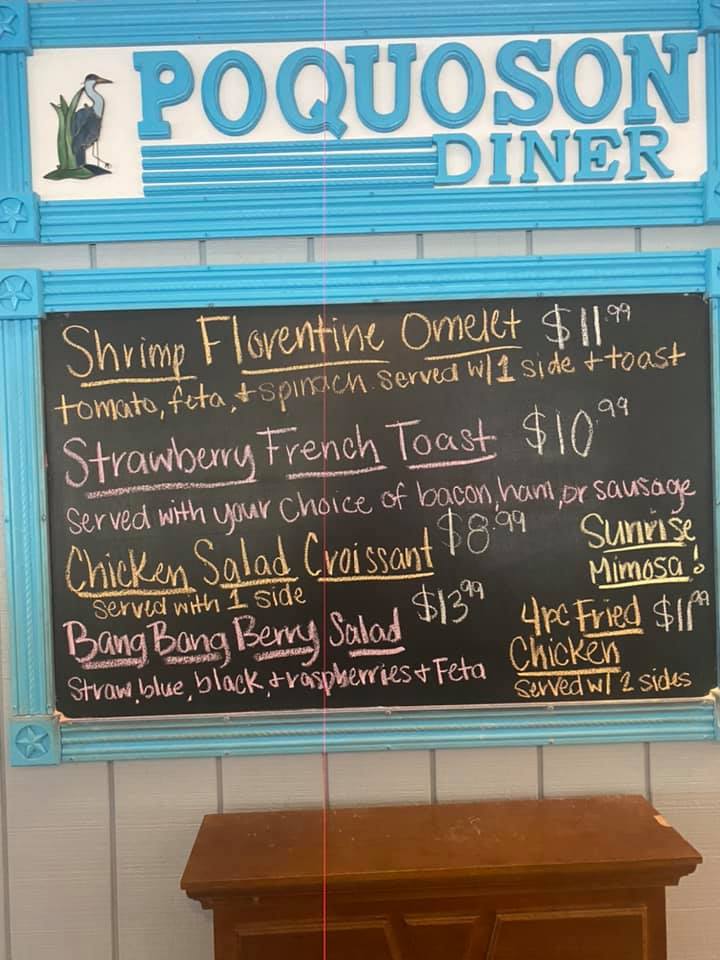 POQUOSON
DINER
Shrimp Florentine Omelet $11.99
tomato, feta, + spinach. served w/1 side + toast
Strawberry French Toast $10.99
served with your choice of bacon, ham, or sausage
Chicken Salad Croissant $8.99
served with 1 side
Sunrise
Mimosa!
Bang Bang Berry Salad $13.99
Straw, blue, black, + raspberries + Feta
4pc Fried $11.99
Chicken
served w/ 2 sides